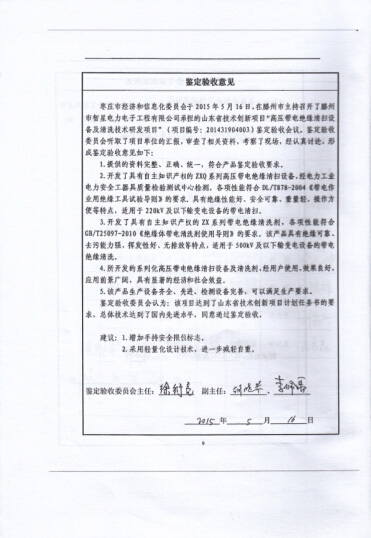 鉴定验收意见
枣庄市经济和信息化委员会于2015年5月16日,在滕州市主持召开了滕州
市智星电力电子工程有限公司承担的山东省技术创新项目"高压带电绝缘清扫设
备及清洗技术研发项目"(项目编号:201431904003)鉴定验收会议。鉴定验收
委员会听取了项目单位的汇报,审查了相关资料,考察了现场,经认真讨论,形
成鉴定验收意见如下:
1.提供的资料完整、正确、统一,符合产品鉴定验收要求。
2.开发了具有自主知识产权的ZXQ系列高压带电绝缘清扫设备,经电力工业
电力安全工器具质量检验测试中心检测,各项性能符合DL/T878-2004《带电作
业用绝缘工具试验导则》的要求。具有绝缘性能好、安全可靠、重量轻、操作方
便等特点,适用于220kV及以下输变电设备的带电清扫。
3.开发了具有自主知识产权的ZX系列带电绝缘清洗剂,各项性能符合
GB/T25097-2010《绝缘体带电清洗剂使用导则》的要求。该产品具有绝缘可靠、
去污能力强、挥发性好、无排放等特点,适用于500kV及以下输变电设备的带电
绝缘清洗。
4.所开发的系列化高压带电绝缘清扫设备及清洗剂,经用户使用,效果良好,
应用前景广阔,具有显著的经济和社会效益。
5.该产品生产设备齐全、先进,检测设备完善,可以满足生产要求。
鉴定验收委员会认为:该项目达到了山东省技术创新项目计划任务书的要
求,总体技术达到了国内先进水平,同意通过鉴定验收。
建议:1.增加手持安全限位标志。
2.采用轻量化设计技术,进一步减轻自重。
鉴定验收委员会主任: 副主任: 、
2015年 5 月 16 日